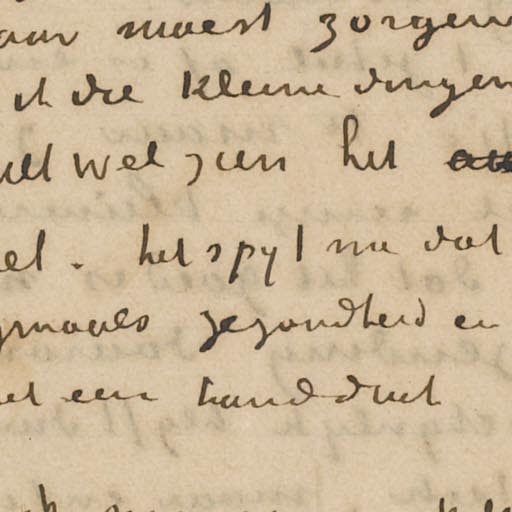 aar moest zorgen
ik die kleine dingen
ult wel zien het
el. het spyt me dat
gmaals gezondheid en
et een handdruk